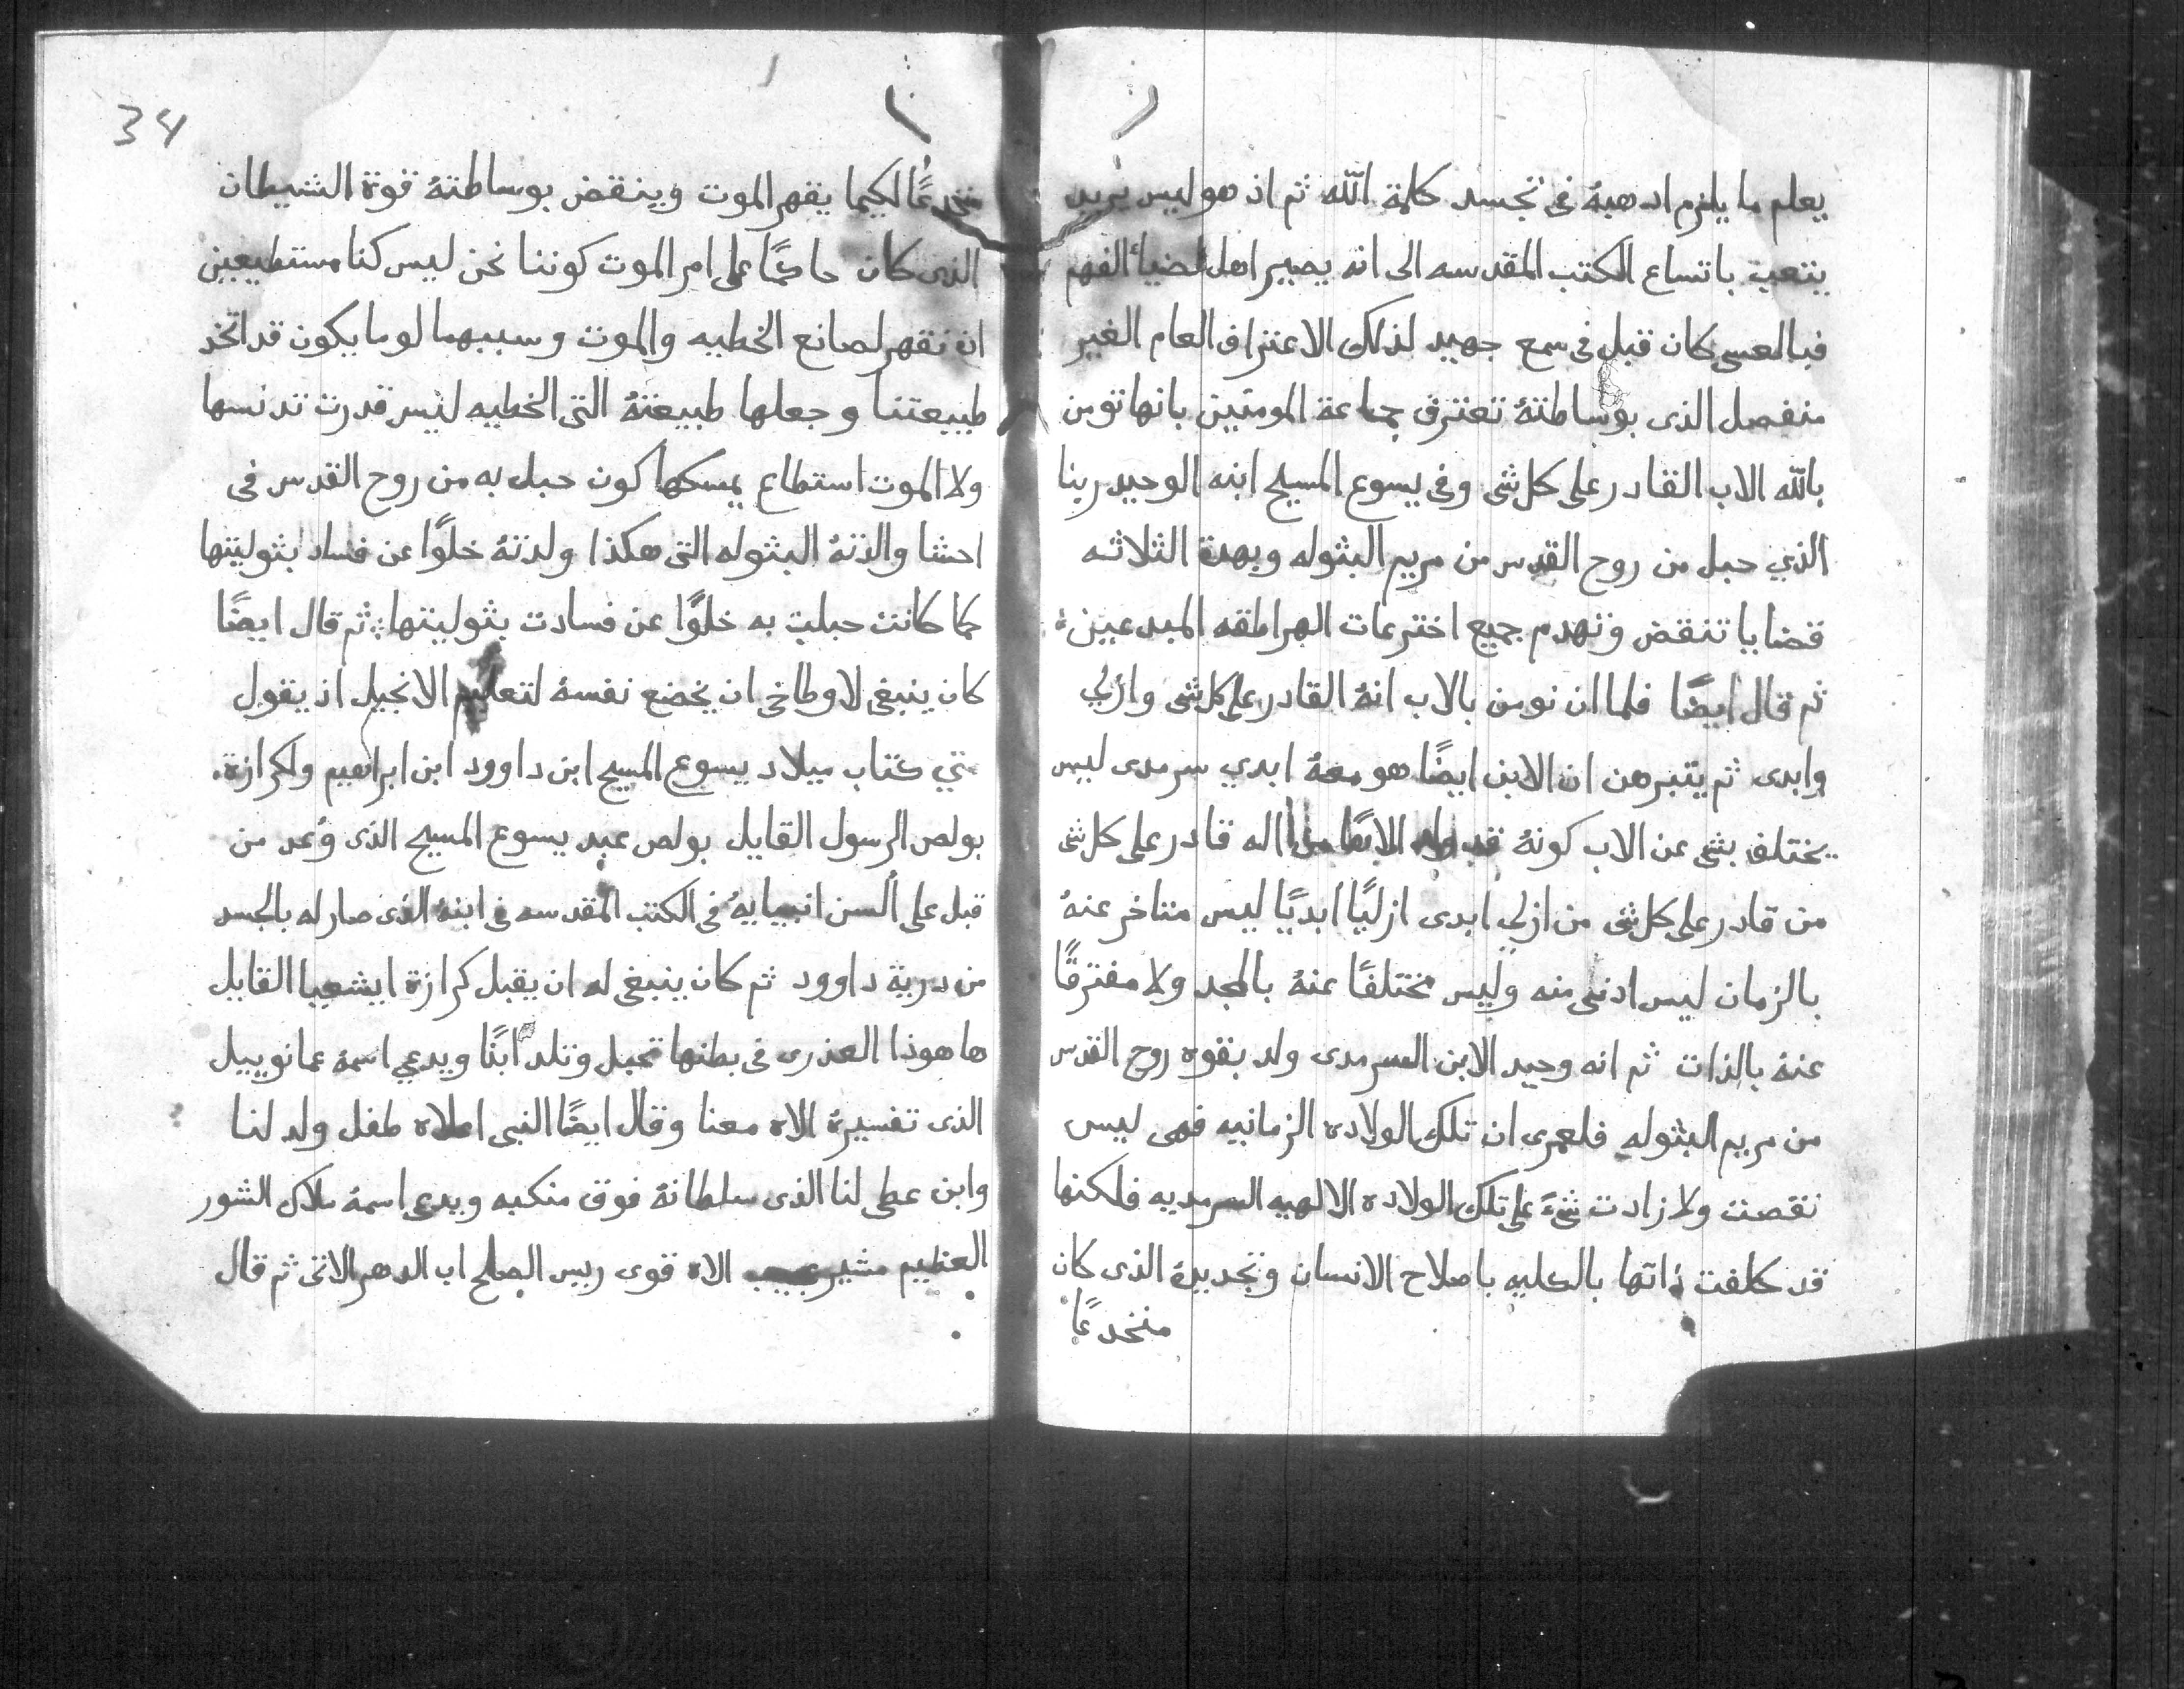 يعلم ما يلزم ادهبهُ فى تجسد كلمة الله ثم اذ هو ليس يريد
يتعب باتساع الكتب المقدسه الى انه يصير اهل لضياءُ الفهم
فبالعسى كان قبل فى سمع جهيد لذلك الاعتراف العام الغير
منفصل الذى بوساطتهُ تعترف جماعة المومنين بانها تومن
بالله الاب القادر على كل شى وفى يسوع المسيح ابنه الوحيد ربنا
الذي حبل من روح القدس من مريم البثوله وبهدة الثلاثه
قضايا تنقض وتهدم جميع اخترعات الهراطقه المبدعين
ثم قال ايضًا فلما ان نومن بالاب انهُ القادر على كل شى وازلي
وابدى ثم يتبرهن ان الابن ايضًا هو معهُ ابدي سرمدى ليس
يختلف بشى عن الاب كونهُ قد ولد اله قادر على كل شى
من قادر على كل شى من ازلي ابدى ازليًا ابديًا ليس متاخر عنهُ
بالزمان ليس ادنى منه وليس مختلفًا عنهُ بالمجد ولا مفترقًا
عنهُ بالذات ثم انه وحيد الابن السرمدى ولد بقوه روح القدس
من مريم البثوله فلعمرى ان تلك الولاده الزمانيه فهى ليس
نقصت ولا زادت شىً على تلك الولاده الالهيه السرمديه فلكنها
قد كلفت ذاتها بالكليه باصلاح الانسان وتجديدهُ الذى كان
منخدعًا
34
منخدعًا لكيما يقهر الموت وينقض بوساطتهُ قوة الشيطان
الذى كان حاكمًا على امر الموت كوننا نحن ليس كنا مستطيعين
ان نقهر لصانع الخطيه والموت وسببهما لو ما يكون قد اتخد
طبيعتنا وجعلها طبيعتهُ التى الخطيه ليس قدرت تدنسها
ولا الموت استطاع يمسكها كون حبل به من روح القدس فى
احشا والدتهُ البثوله التى هكذا ولدتهُ خلوًا عن فساد بثوليتها
كما كانت حبلت به خلوًا عن فسادت بثوليتها ثم قال ايضًا
كان ينبغى لاوطاخى ان يخضع نفسهُ لتعليم الانجيل اذ يقول
متي كتاب ميلاد يسوع المسيح ابن داوود ابن ابراهيم ولكرازة
بولص الرسول القايل بولص عبد يسوع المسيح الذى وُعد من
قبل على ألسن انبيايهُ فى الكتب المقدسه فى ابنهُ الذى صار له بالجسد
من درية داوود ثم كان ينبغى له ان يقبل كرازة ايشعيا القايل
ها هوذا العذرى فى بطنها تحبل وتلد ابنًا ويدعي اسمهُ عمانوييل
الذى تفسيرهُ الاه معنا وقال ايضًا النبى اعلاه طفل ولد لنا
وابن عطى لنا الذى سلطانهُ فوق منكبه ويدعى اسمهُ ملاك الشور
العظيم مشير عجيب الاه قوى رييس الصلح اب الدهر الاتى ثم قال